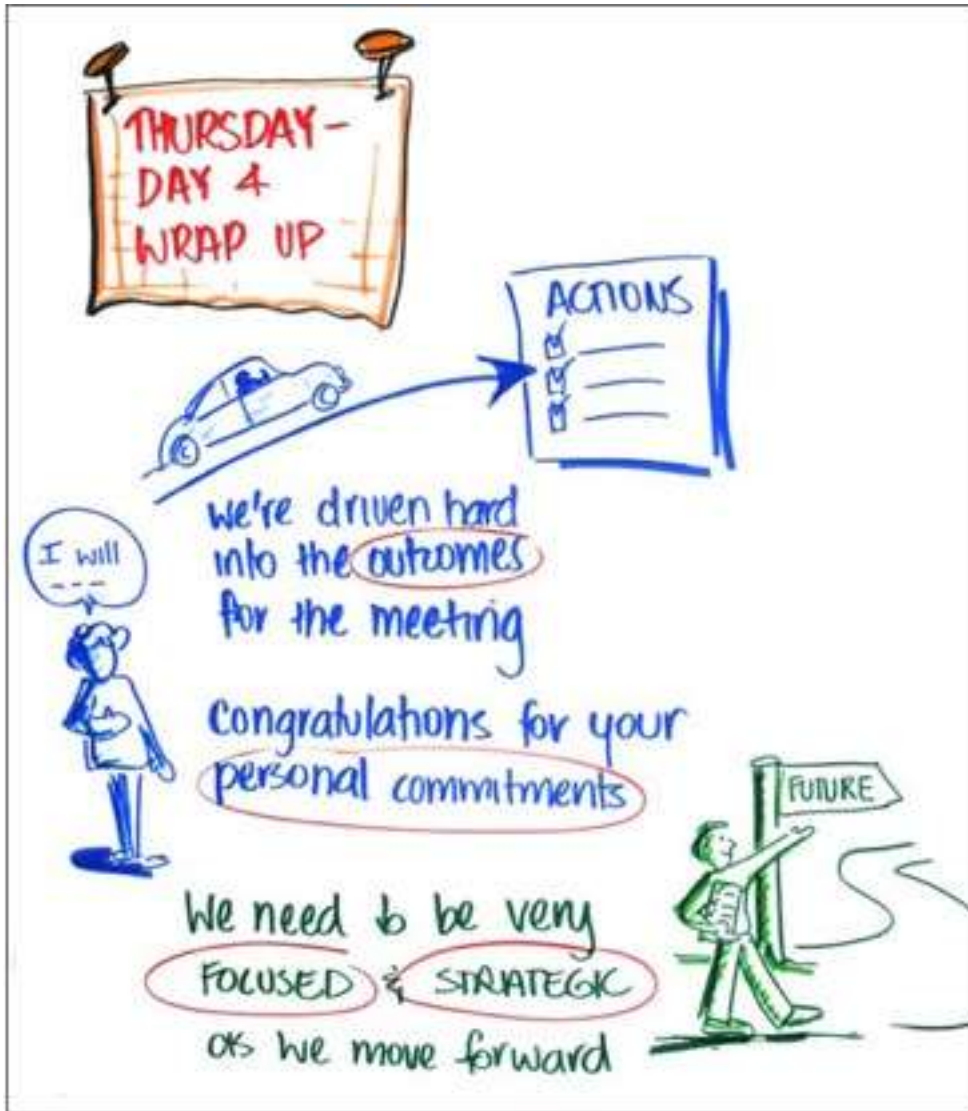 THURSDAY -
DAY 4
WRAP UP
ACTIONS
we're driven hard
into the outcomes
for the meeting
I will
---
Congratulations for your
personal commitments
FUTURE
We need to be very
FOCUSED & STRATEGIC
as we move forward